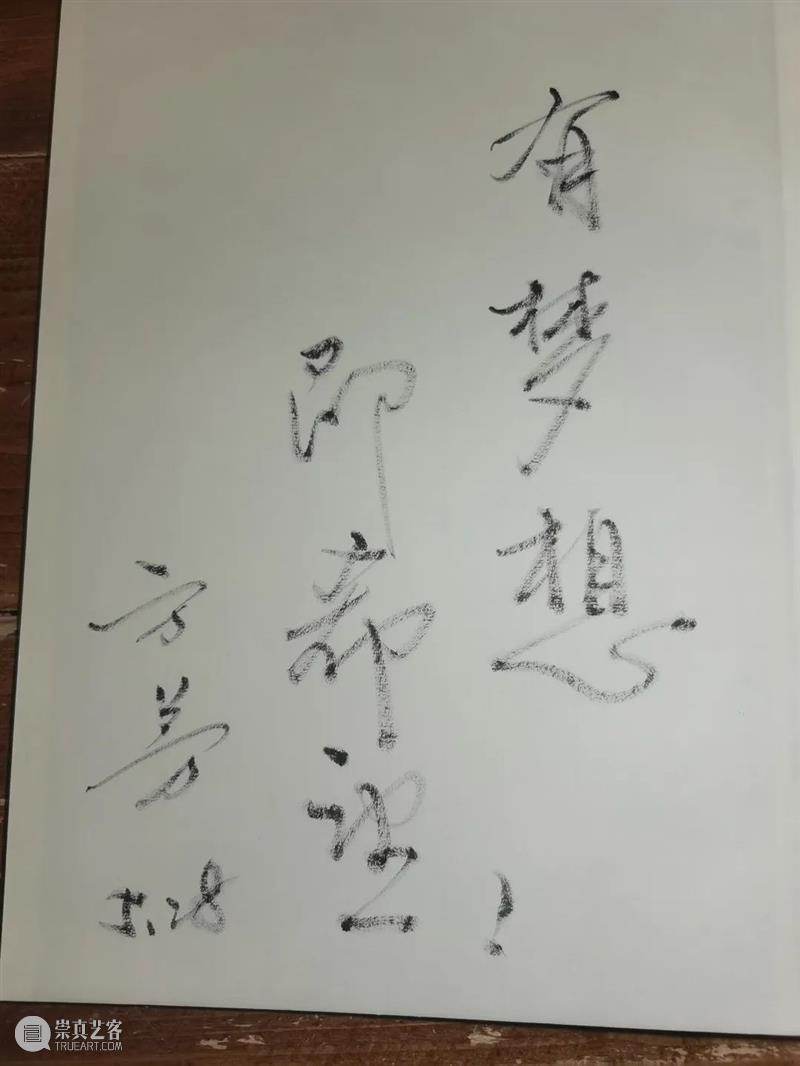 有梦想
即希望!
方芳
崇真艺客
TRUEART.COM